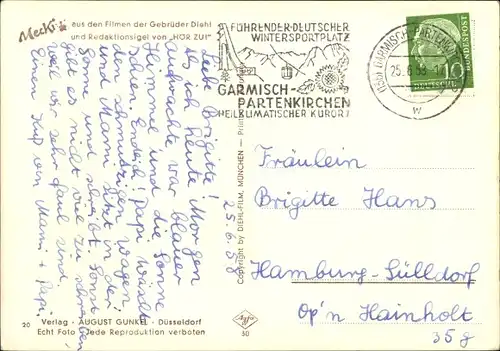 Mecki
aus den Filmen der Gebrüder Diehl
und Redaktionsigel von "HÖR ZU!"
FÜHRENDER·DEUTSCHER
WINTERSPORTPLATZ
GARMISCH-
PARTENKIRCHEN
HEILKLIMATISCHER KURORT
GARMISCH-PARTENK
25.6.58
w
DEUTSCHE BUNDESPOST
10
Liebe Brigitte!
Als ich heute Morgen
aufwachte, war blauer
Himmel und die Sonne
schien. Endlich! Papi wäscht
den schmutzigen Wagen
und Mami sitzt in der
Sonne und schreibt. Sonst
gibt es nicht viel zu schreiben,
weil wir sehr faul sind.
Einen Kuß von Mami + Papi.
25.6.58
Copyright by DIEHL-FILM, MÜNCHEN
Fräulein
Brigitte Hans
Hamburg-Sülldorf
Op'n Hainholt
35g
20
Verlag · AUGUST GUNKEL · Düsseldorf
Echt Foto · Jede Reproduktion verboten
Agfa
50